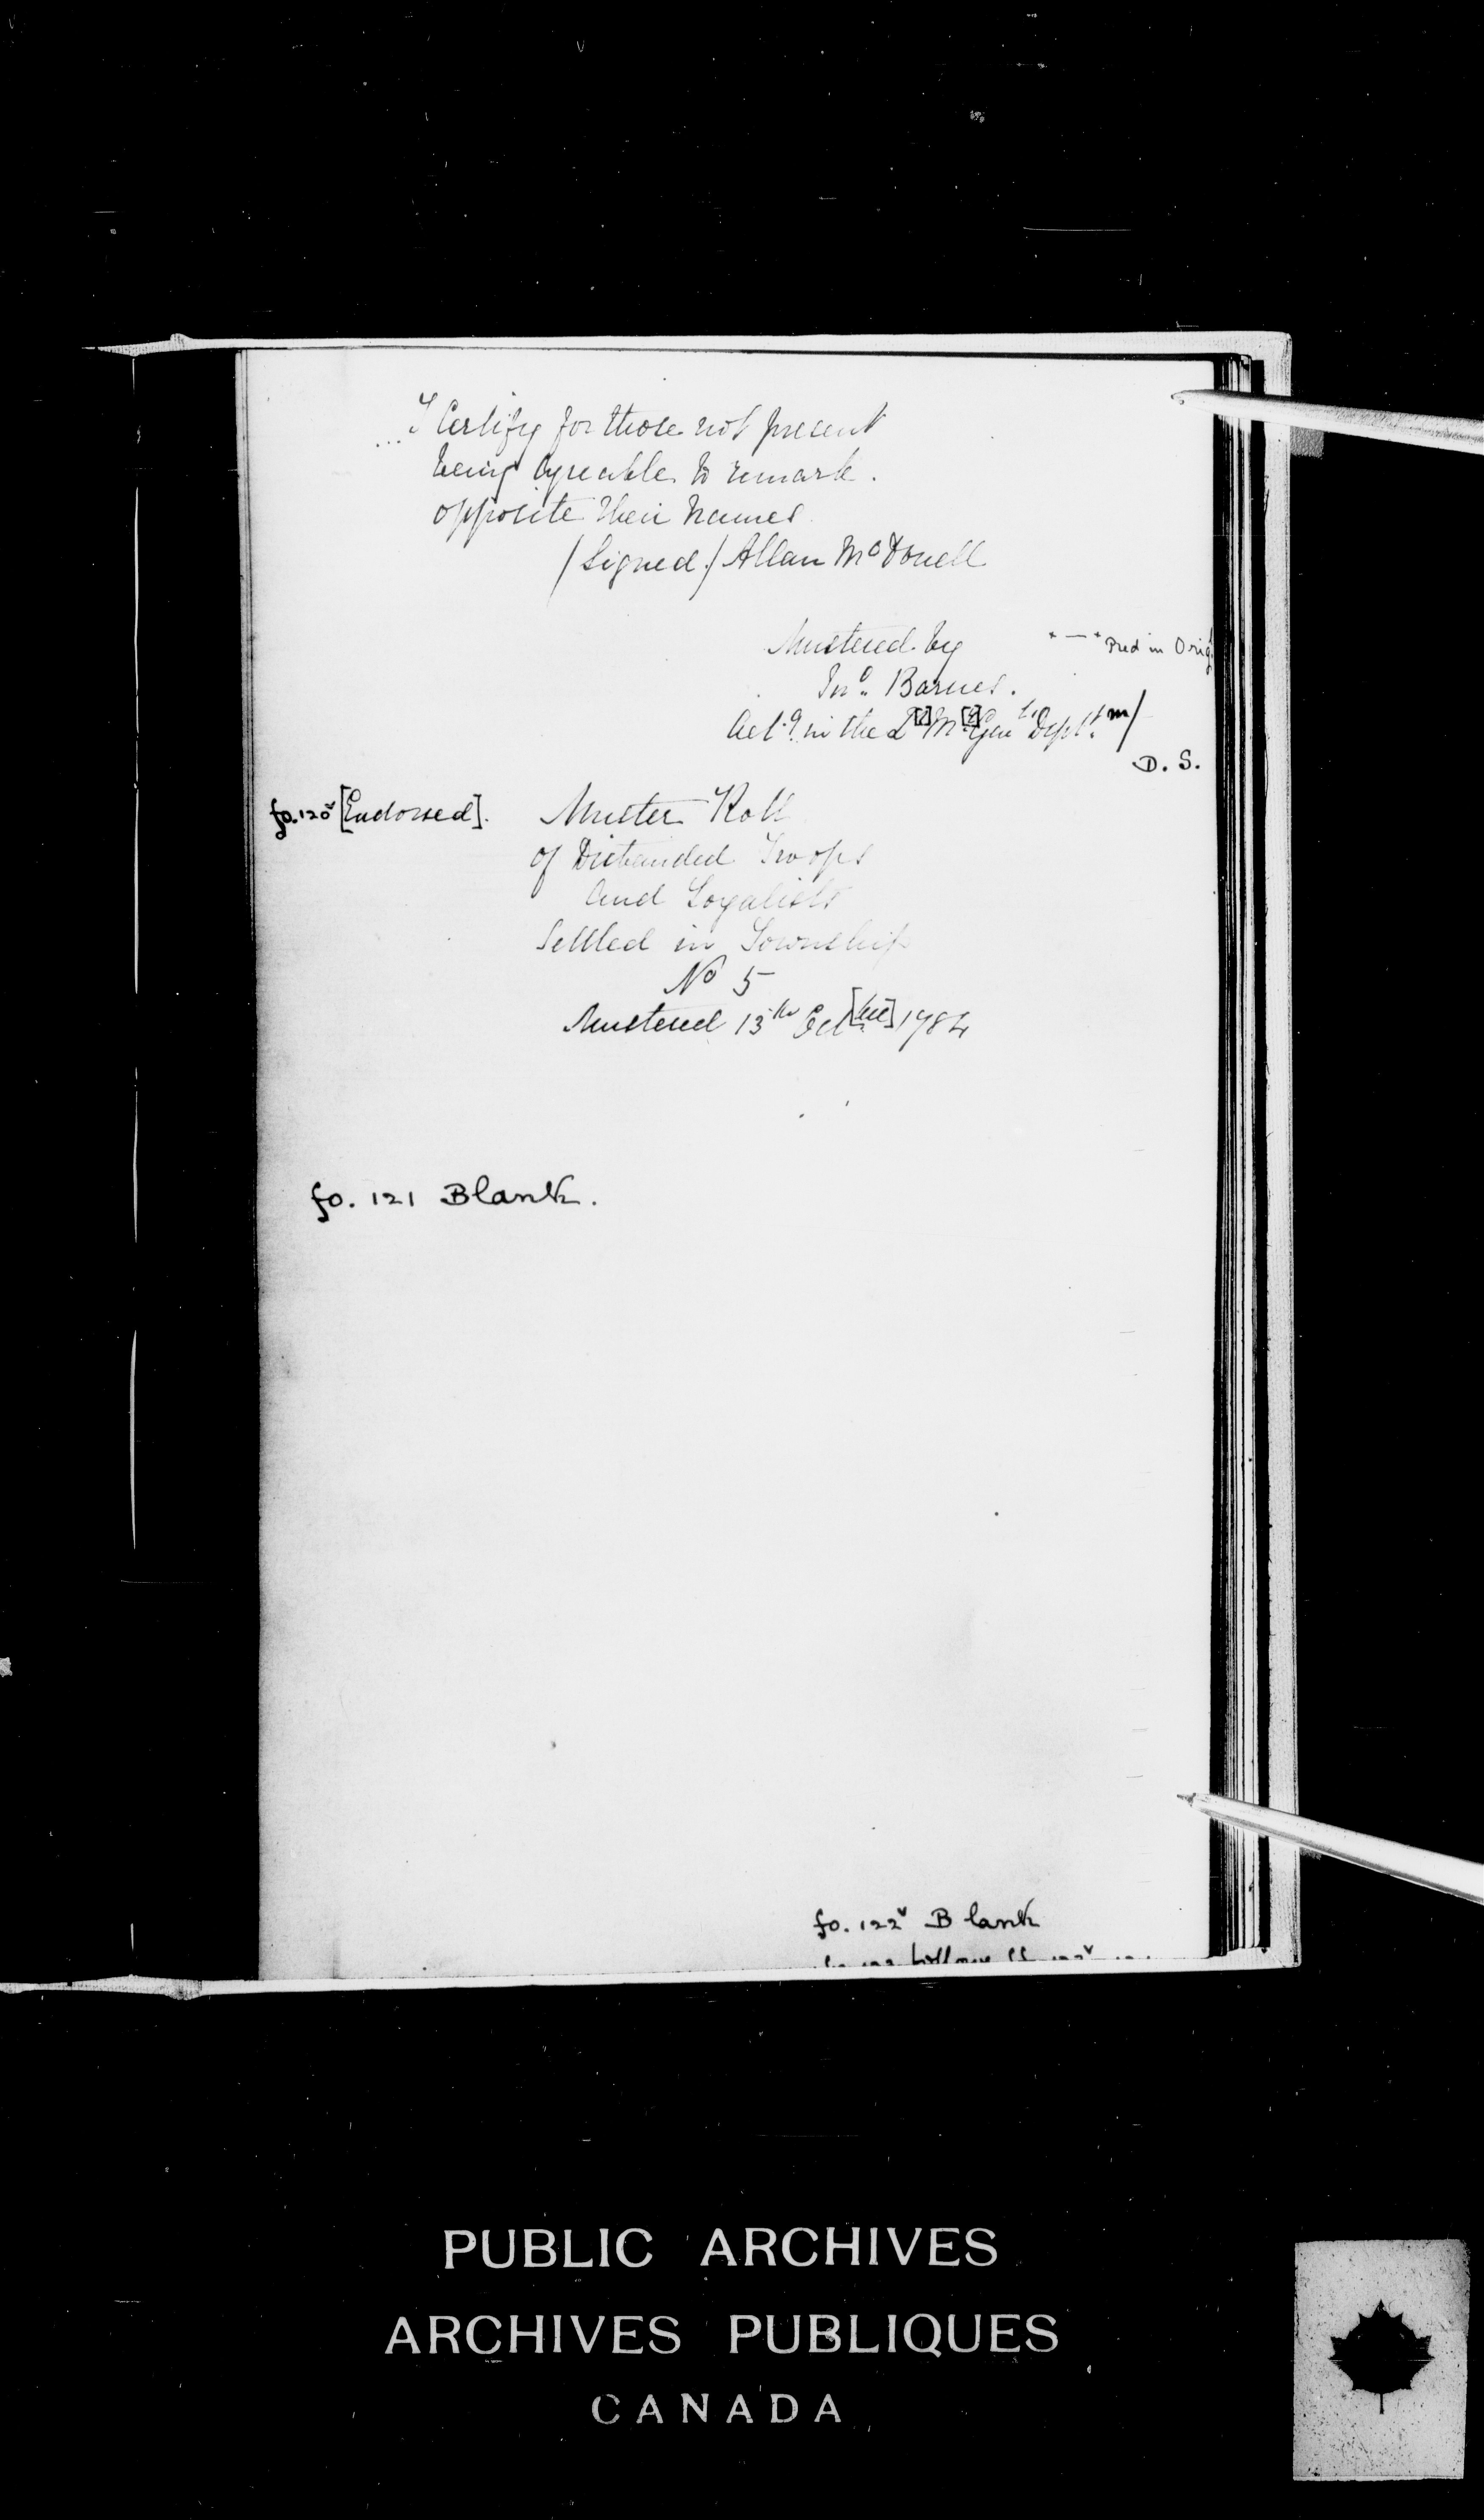 I Certify for those not present
being agreeable to remark.
opposite their Names
/Signed/ Allan McDonell
Mustered by
Jno. Barnes.
in Orig
Act.g in the Gen Dept. m/
D. S.
fo. 120v [Endorsed]. Muster Roll
of Disbanded Troops
And Loyalists
Settled in Township
No 5
Mustered 13th 1784
fo. 121 Blank.
fo. 122v Blank
PUBLIC ARCHIVES
ARCHIVES PUBLIQUES
CANADA